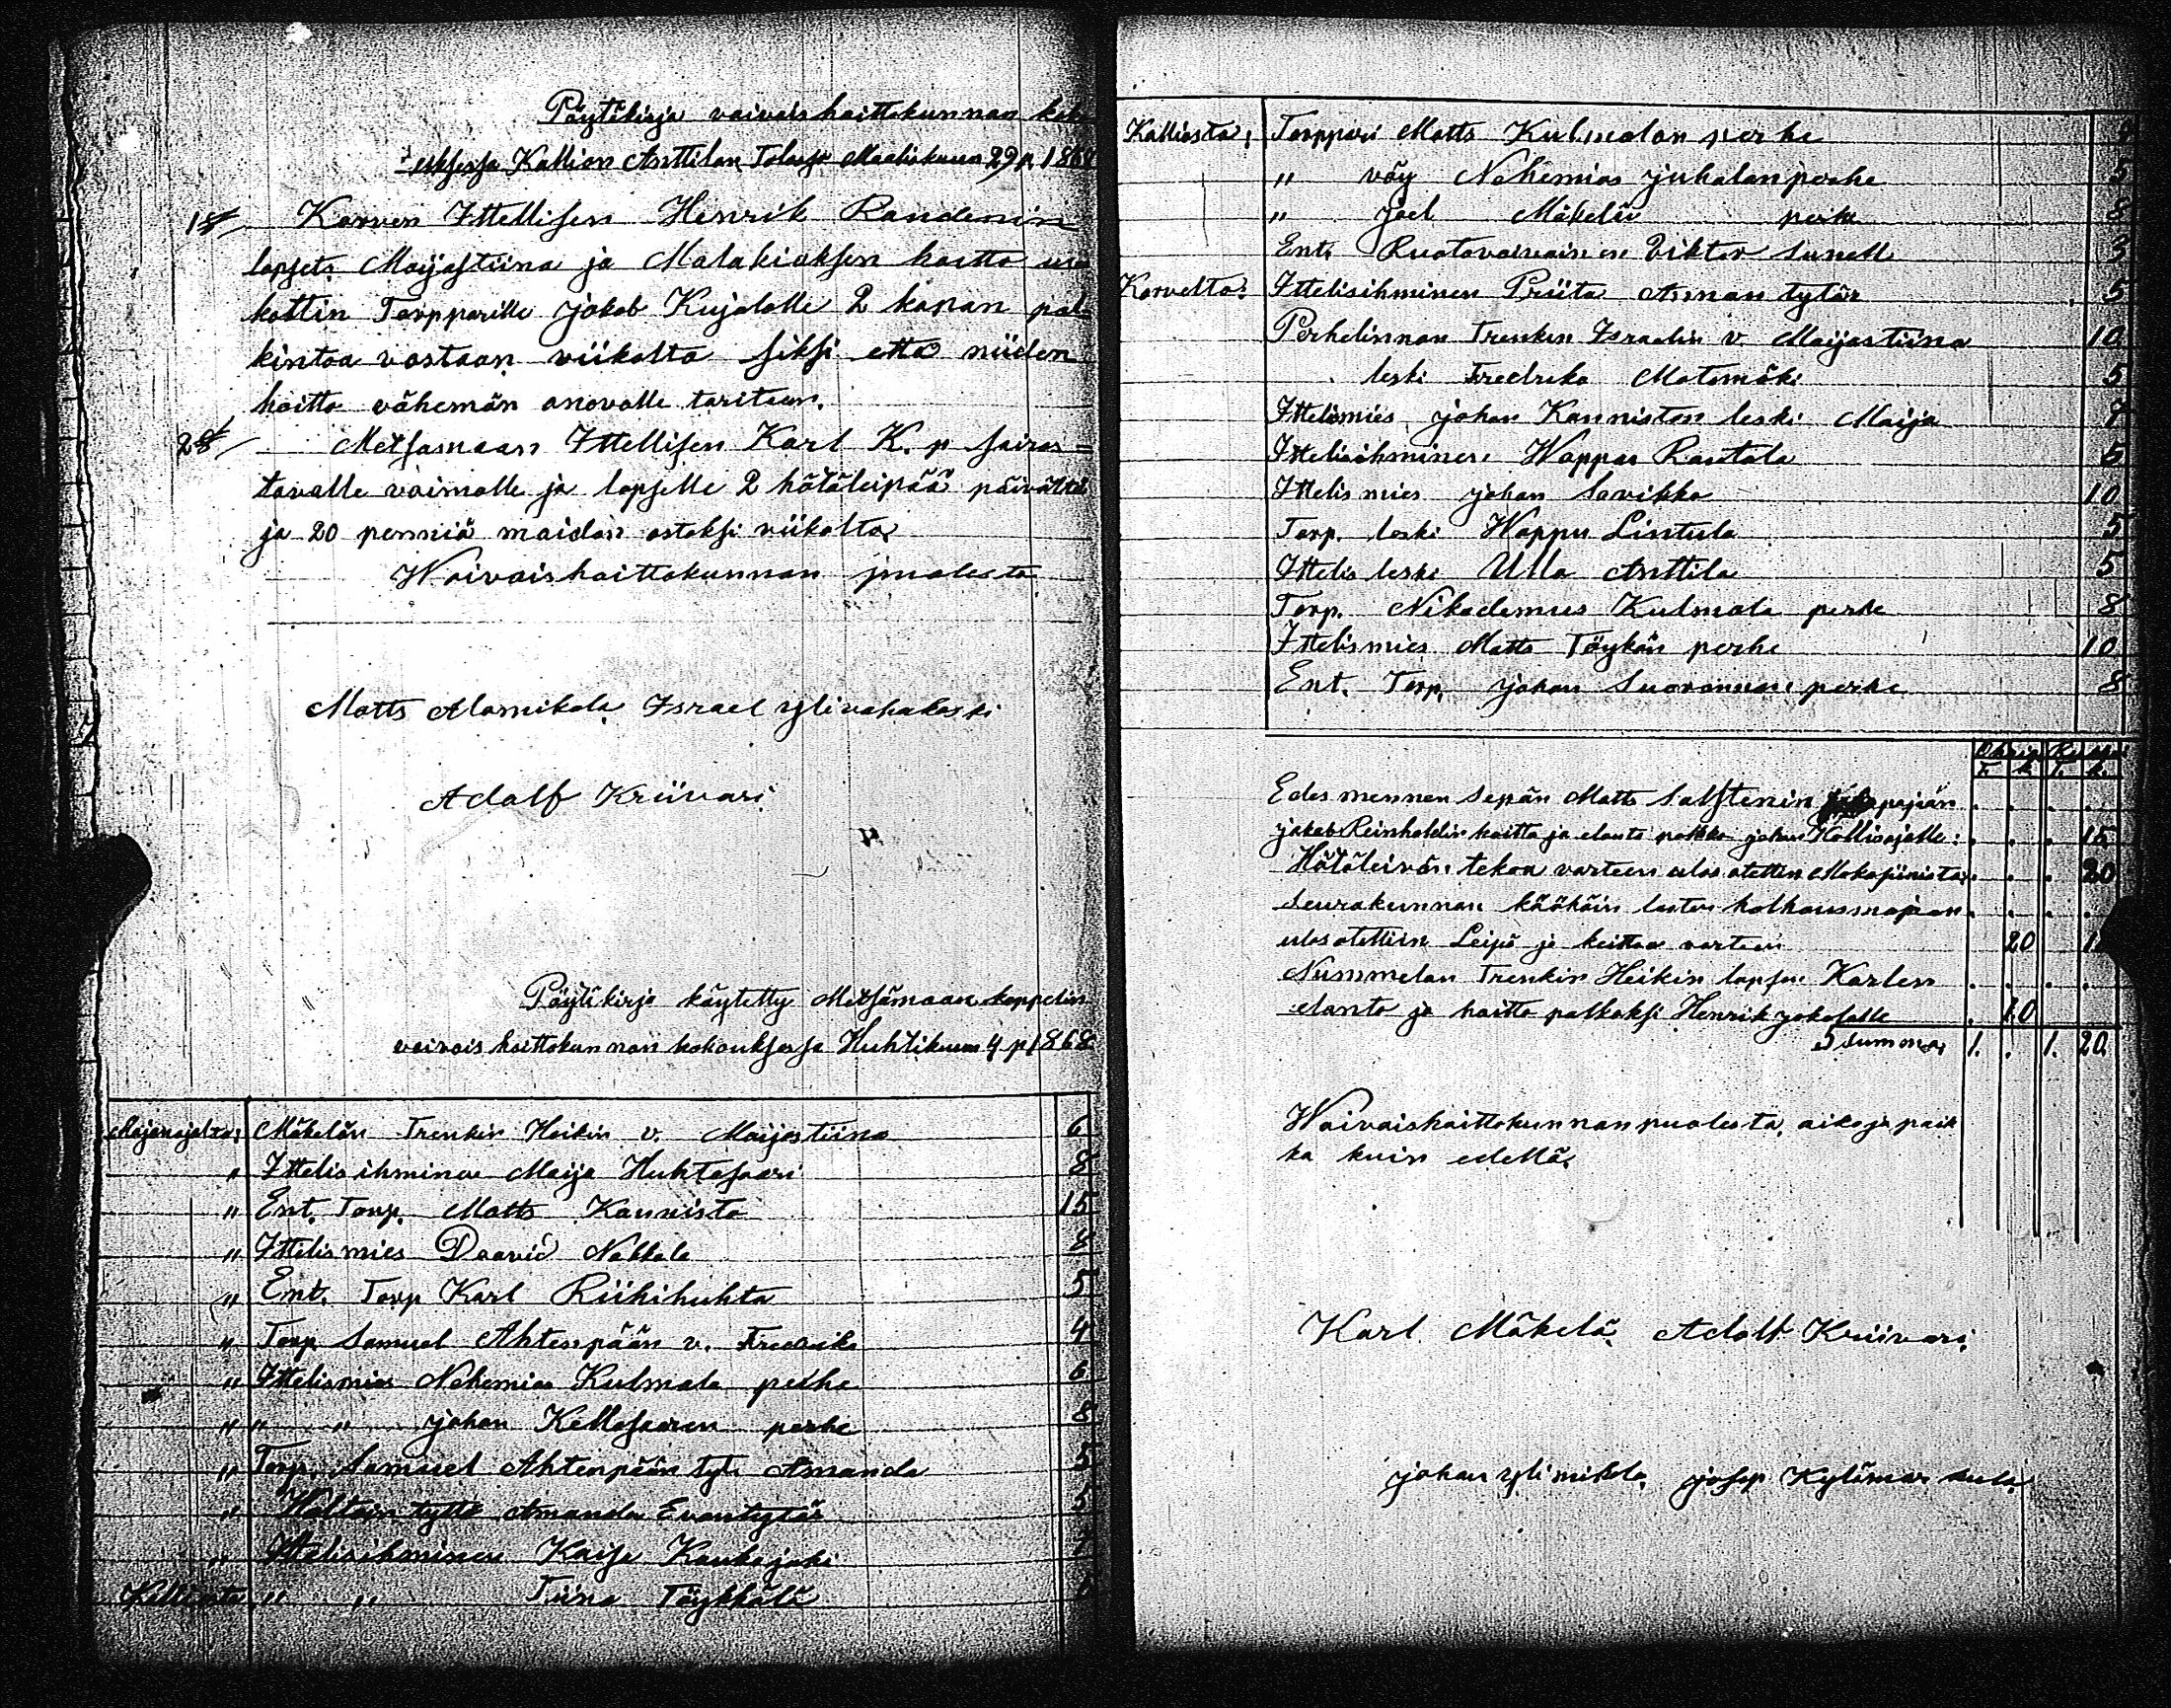 Pöytäkirja vaivaishoittokunnan kok
uksessa Kallion Anttilan Talossa Maaliskuun 29 p. 1868
1 §
Korven Ittellisen Henrik Randenin
lapsets Maijastiina ja Malakiaksen hoitto
kottin Torpparille Jakob Kujalalle 2 kapan pal-
kintoa vastaan viikolta siksi että niiden
hoitto vähemän anovalle taritaan.
2 §
Metsämaan Ittellisen Karl K. p sairas=
tavalle vaimolle ja lapselle 2 hätäleipää päivältä
ja 20 penniä maidon ostoksi viikolta
Waivaishoittokunnan puolesta
Matts Alamikola. Israel ylivahakoski
Adolf Kriivari.
Pöytäkirja käytetty Metsämaan kappelin
vaivaishoittokunnan kokouksessa Huhtikuun 4 p 1868
Majanojalta: Mäkelän Trenkin Heikin v. Maijastiina 6
" Ittelisihminen Maija Huhtasaari 8
" Ent. Torp. Matts Kannisto 15
" Ittelismies Daavid Nakkala 8
" Ent. Torp Karl Riihihuhta 5
" Torp Samuel Ahtenpään v. Fredrika 4
" Ittelismies Nehemias Kulmala perhe 6
" " " Johan Kellosaaren perhe 8
" Torp. Samuel Ahtenpään tytt. Amanda 5
" tyttö Amanda Evantytär 5
" Ittelisihminen Kaisa Kaukajoki 7
Kalliosta " " Tiina Töykkälä
Kalliosta: Torppari Matts Kulmalan perhe
" väy Nehemias Juhalan perhe 5
" Joel Mäkelän perhe 8
Ent. Ruotovaivainen Viktor Sunell 3
Korvelta: Ittelisihminen Priita Annan tytär 5
Perhelinnan Trenkin Israelin v Maijastiina 10
leski Fredrika Matomäki 5
Ittelismies Johan Kanniston leski Maija 7
Ittelisihminen Wappu Rantala 5
Ittelis mies Johan Savikko 10
Torp. leski Wappu Lintula 5
Ittelis leski Ulla Anttila 5
Torp. Nikodemus Kulmala perhe 8
Ittelismies Matts Töykän perhe 10
Ent. Torp. Johan Suovannan perhe 8
T. k. T. k.
Edes mennen Sepän Matts Salstenin pojan . . . .
Jakob Reinholdin hoitto ja elanto palkka Johan Hollisojalle: . . . 15
Hätäleivän tekoa varten ulos otettin Makasiinista . . . 20
Seurakunnan käökäin lasten holhousmajaan . . . .
ulosotettiin Leipä ja keittoa varten 20
Nummelan Trenkin Heikin lapsen Karlen . . . .
elanto ja hoitto palkaksi Henrik Jokosalle . 10
Summa 1. . 1. 20.
Waivaishoittokunnan puolesta, aika ja paik
ka kuin edellä.
Karl Mäkelä. Adolf Kriivari.
Johan yli mikola. Josep Kylänmaa